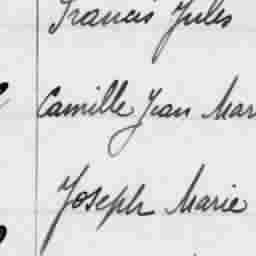 Francis Jules
Camille Jean Mar
Joseph Marie